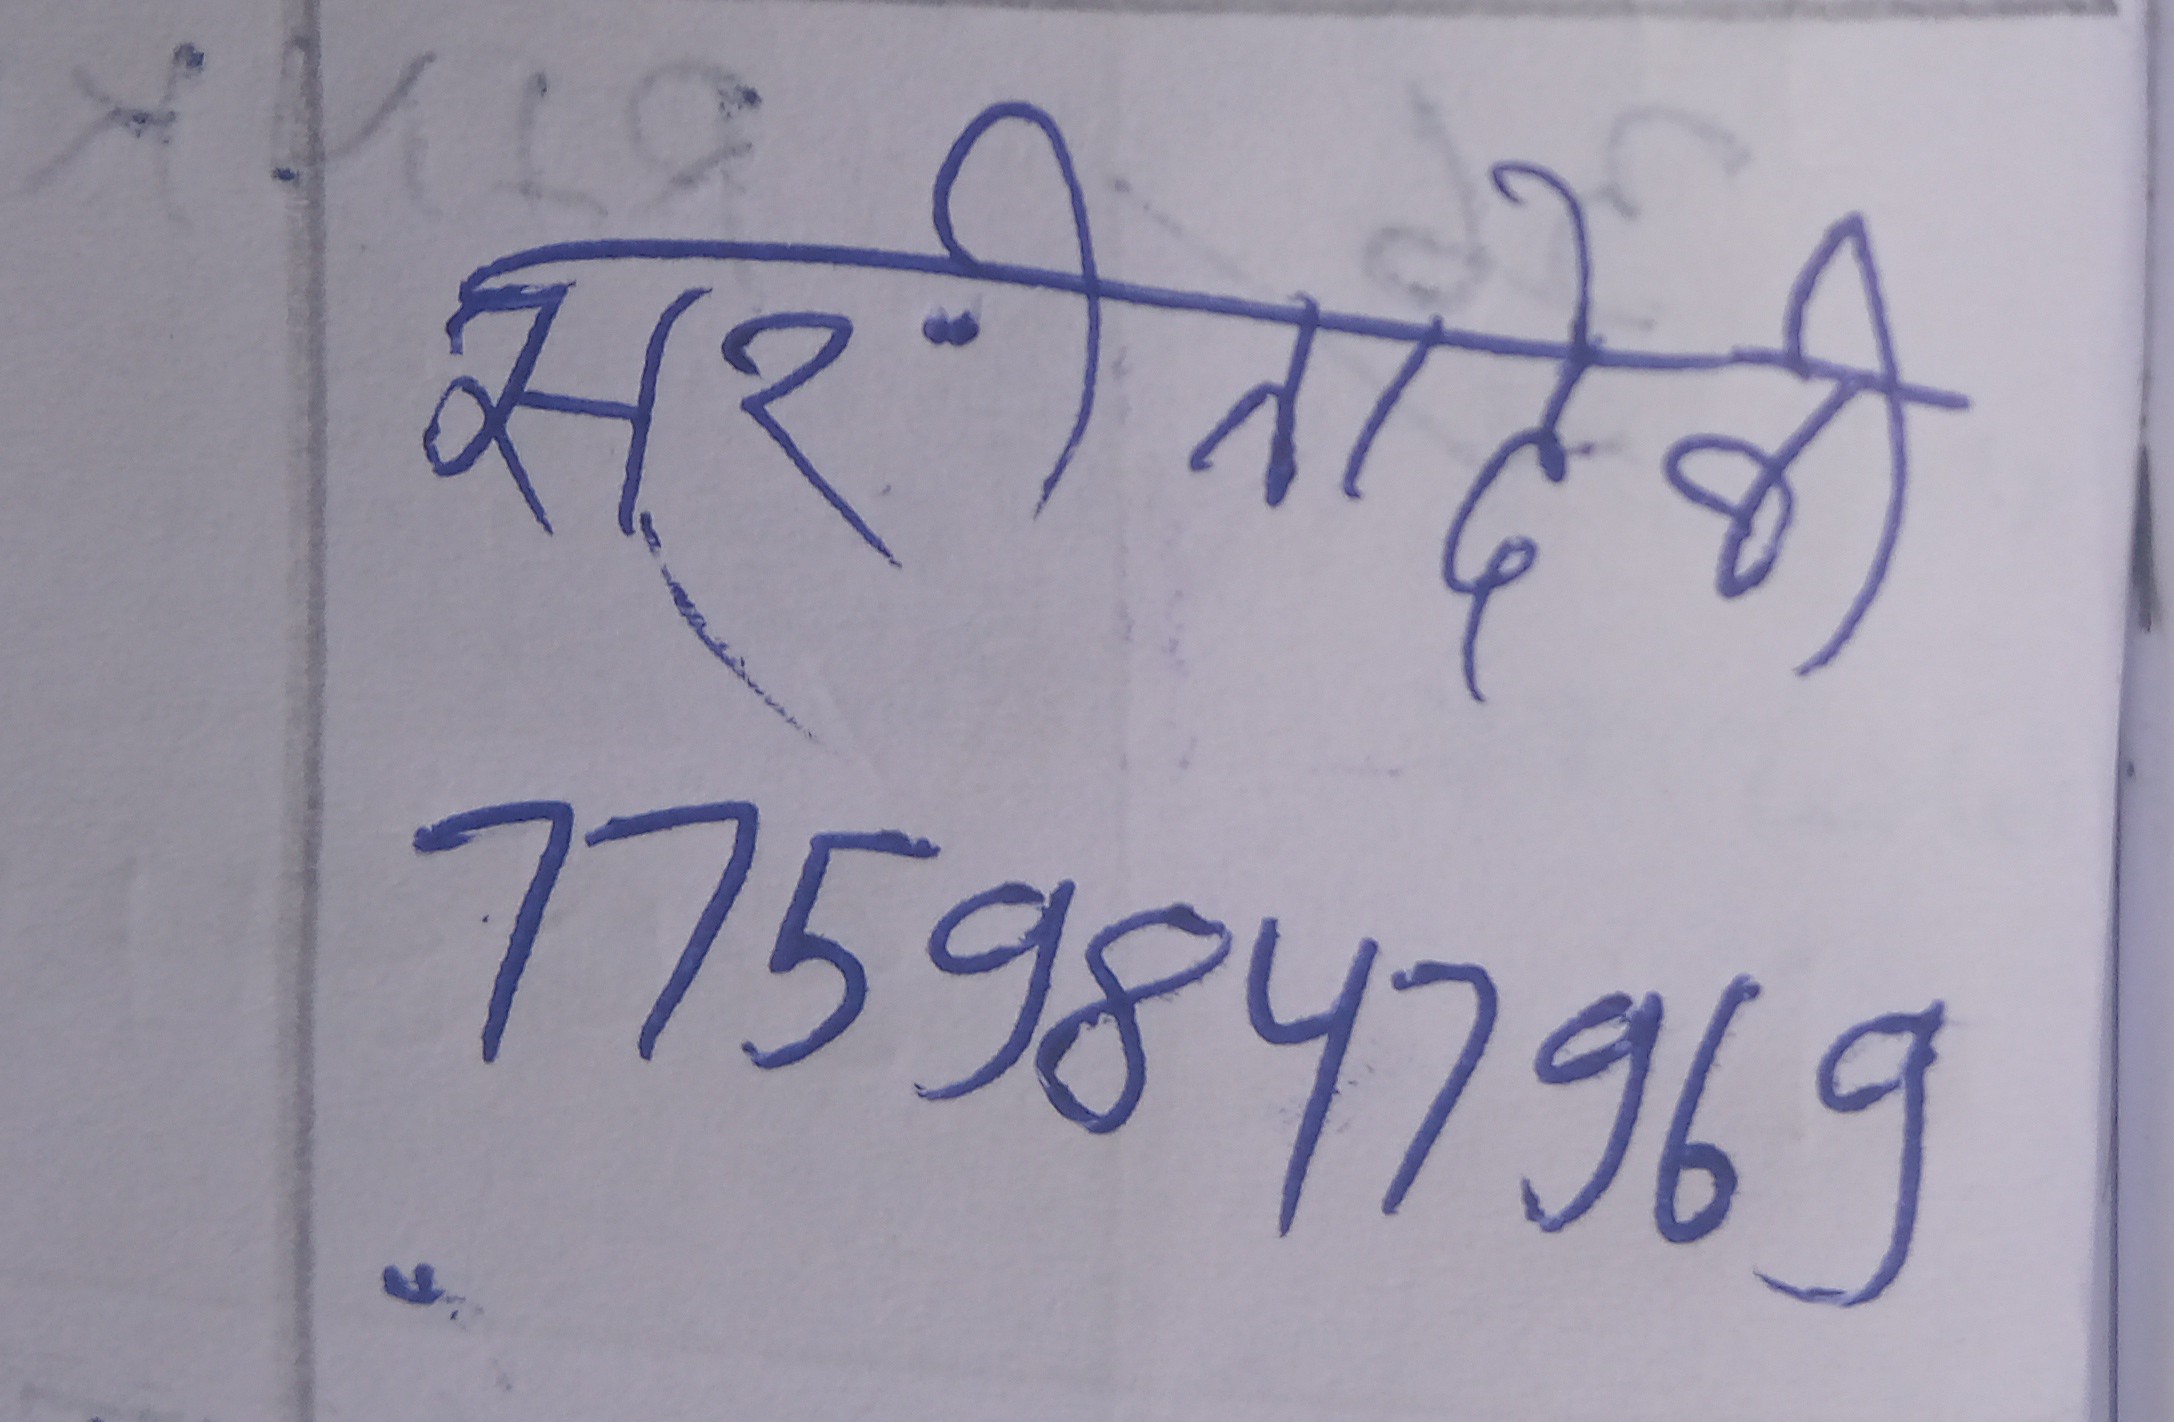 सरीता देवी
7759847969